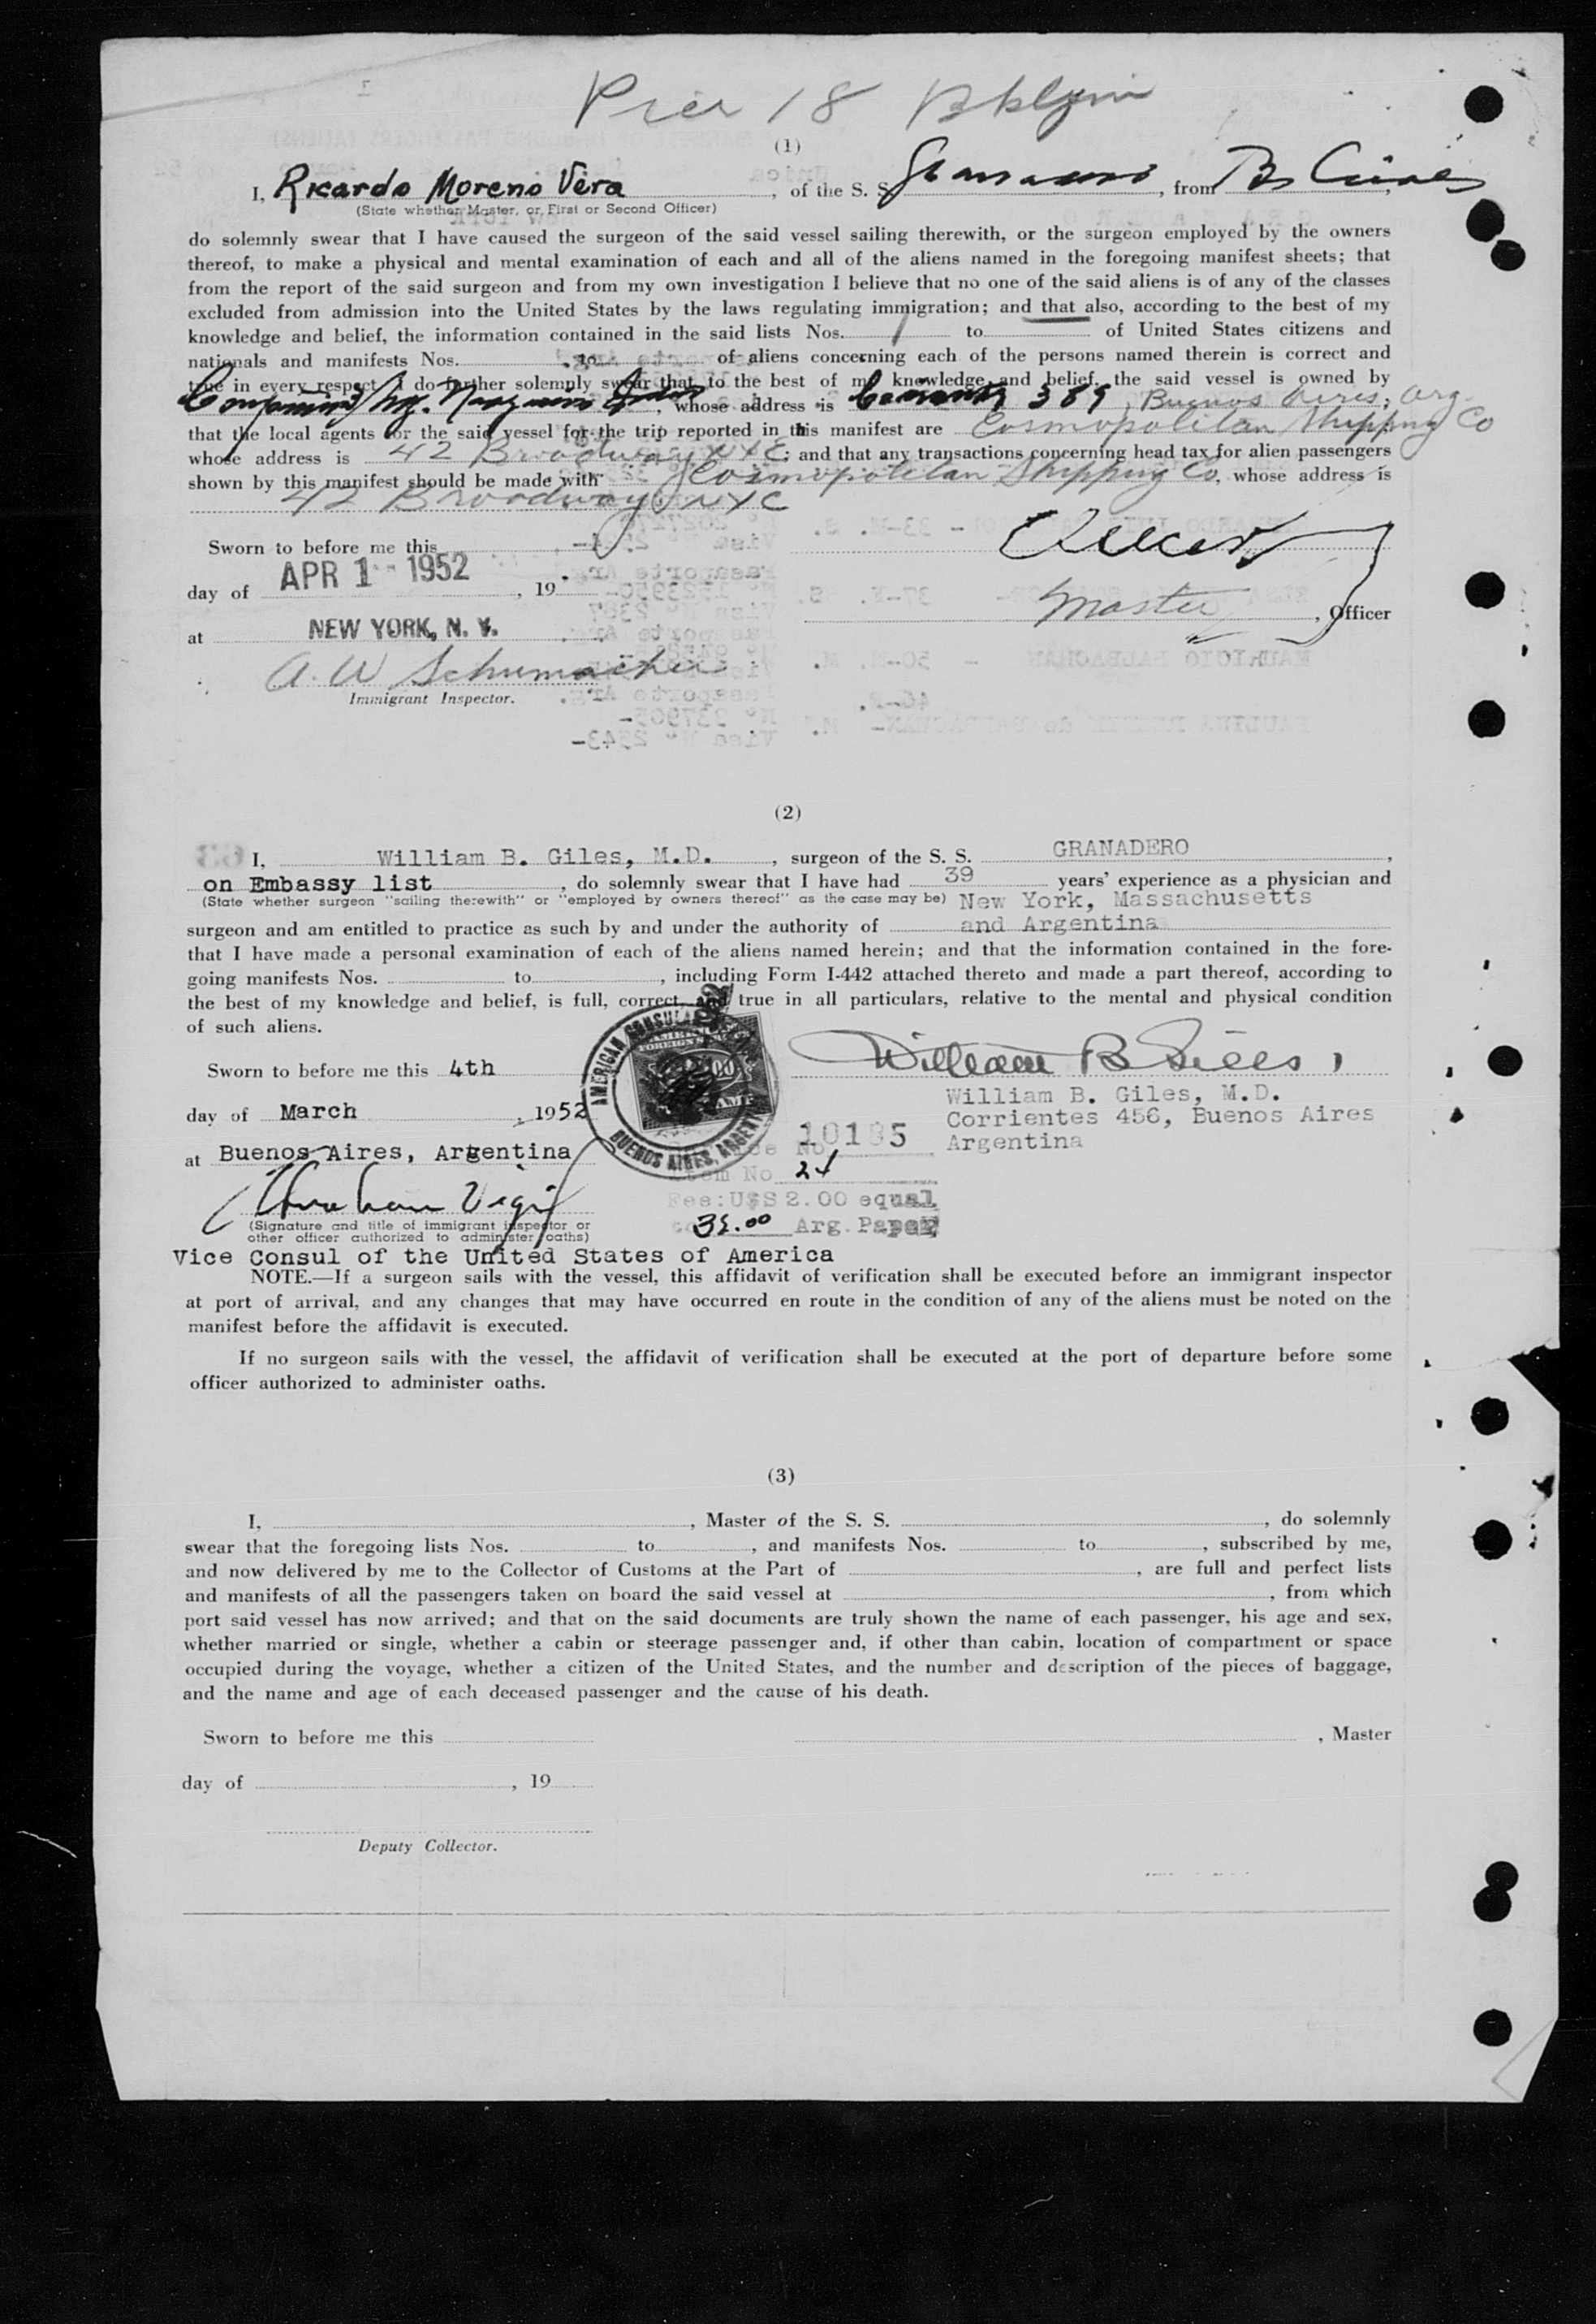 Pier 18 Bklyn
(1)
I, Ricardo Moreno Vera, of the S. S. Granadero, from Bs Aires,
(State whether Master, or First or Second Officer)
do solemnly swear that I have caused the surgeon of the said vessel sailing therewith, or the surgeon employed by the owners
thereof, to make a physical and mental examination of each and all of the aliens named in the foregoing manifest sheets; that
from the report of the said surgeon and from my own investigation I believe that no one of the said aliens is of any of the classes
excluded from admission into the United States by the laws regulating immigration; and that also, according to the best of my
knowledge and belief, the information contained in the said lists Nos. 1 to of United States citizens and
nationals and manifests Nos. to of aliens concerning each of the persons named therein is correct and
true in every respect. I do further solemnly swear that to the best of my knowledge and belief, the said vessel is owned by
, whose address is 389, Buenos Aires, Arg.;
that the local agents for the said vessel for the trip reported in this manifest are Cosmopolitan Shipping Co
whose address is 42 Broadway NYC; and that any transactions concerning head tax for alien passengers
shown by this manifest should be made with Cosmopolitan Shipping Co, whose address is
42 Broadway NYC
Sworn to before me this
day of APR 1 - 1952, 19
Master, Officer
at NEW YORK, N. Y.
A. W. Schumacher
Immigrant Inspector.
(2)
I, William B. Giles, M.D., surgeon of the S. S. GRANADERO,
on Embassy list, do solemnly swear that I have had 39 years' experience as a physician and
(State whether surgeon "sailing therewith" or "employed by owners thereof" as the case may be) New York, Massachusetts
surgeon and am entitled to practice as such by and under the authority of and Argentina
that I have made a personal examination of each of the aliens named herein; and that the information contained in the fore-
going manifests Nos. to, including Form I-442 attached thereto and made a part thereof, according to
the best of my knowledge and belief, is full, correct, and true in all particulars, relative to the mental and physical condition
of such aliens.
AMERICAN CONSULAR
BUENOS AIRES, ARGENTINA
Sworn to before me this 4th
William B Giles
William B. Giles, M.D.
day of March, 1952
Corrientes 456, Buenos Aires
Argentina
at Buenos Aires, Argentina
No. 10195
Item No 24
Fee: U$S 2.00 equal
35.00 Arg. Paper
Abraham Vigil
(Signature and title of immigrant inspector or
other officer authorized to administer oaths)
Vice Consul of the United States of America
NOTE.—If a surgeon sails with the vessel, this affidavit of verification shall be executed before an immigrant inspector
at port of arrival, and any changes that may have occurred en route in the condition of any of the aliens must be noted on the
manifest before the affidavit is executed.
If no surgeon sails with the vessel, the affidavit of verification shall be executed at the port of departure before some
officer authorized to administer oaths.
(3)
I, , Master of the S. S. , do solemnly
swear that the foregoing lists Nos. to , and manifests Nos. to , subscribed by me,
and now delivered by me to the Collector of Customs at the Part of , are full and perfect lists
and manifests of all the passengers taken on board the said vessel at , from which
port said vessel has now arrived; and that on the said documents are truly shown the name of each passenger, his age and sex,
whether married or single, whether a cabin or steerage passenger and, if other than cabin, location of compartment or space
occupied during the voyage, whether a citizen of the United States, and the number and description of the pieces of baggage,
and the name and age of each deceased passenger and the cause of his death.
Sworn to before me this , Master
day of , 19
Deputy Collector.